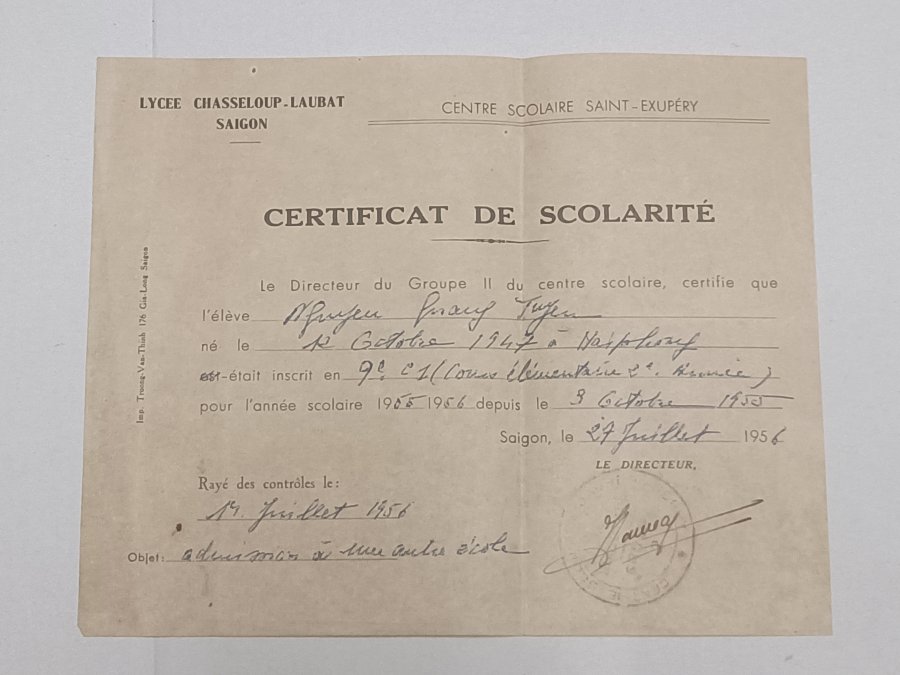 LYCEE CHASSELOUP-LAUBAT
SAIGON
CENTRE SCOLAIRE SAINT-EXUPÉRY
CERTIFICAT DE SCOLARITÉ
Le Directeur du Groupe II du centre scolaire, certifie que
l'élève Nguyen Quang Tuyen
né le 12 Octobre 1947 à Haiphong
est-était inscrit en 9e C1 (Cours élémentaire 2e Année)
pour l'année scolaire 1955 1956 depuis le 3 Octobre 1955
Saigon, le 27 Juillet 1956
LE DIRECTEUR,
Rayé des contrôles le:
Juillet 1956
Objet: admission à une autre école
Imp. Truong-Van-Thinh 176 Gia-Long Saigon